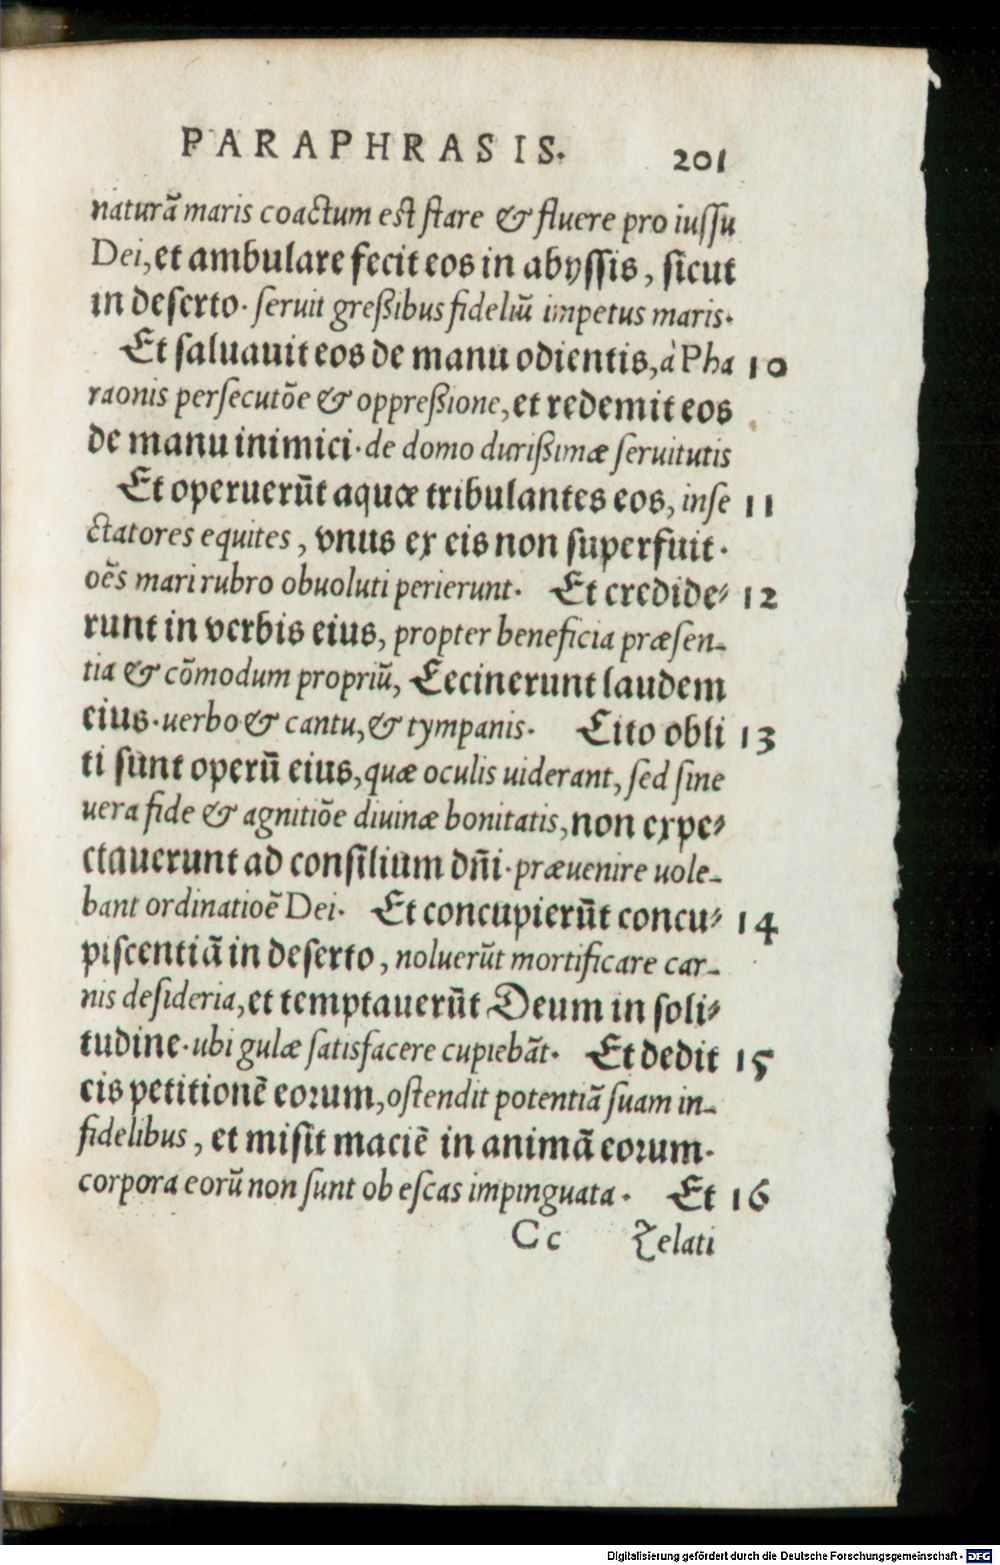 PARAPHRASIS. 201
naturã maris coactum est stare & fluere pro iussu
Dei, et ambulare fecit eos in abyssis, sicut
in deserto. seruit greßibus fideliũ impetus maris.
Et saluauit eos de manu odientis, à Pha 10
raonis persecutõe & oppreßione, et redemit eos
de manu inimici. de domo durißimæ seruitutis
Et operuerũt aquæ tribulantes eos, inse 11
ctatores equites, vnus ex eis non superfuit.
oẽs mari rubro obuoluti perierunt. Et credide⸗ 12
runt in verbis eius, propter beneficia præsen-
tia & cõmodum propriũ, Cecinerunt laudem
eius. uerbo & cantu, & tympanis. Cito obli 13
ti sunt operũ eius, quæ oculis uiderant, sed sine
uera fide & agnitiõe diuinæ bonitatis, non expe⸗
ctauerunt ad consilium dñi. præuenire uole-
bant ordinatioẽ Dei. Et concupierũt concu⸗ 14
piscentiã in deserto, noluerũt mortificare car-
nis desideria, et temptauerũt Deum in soli⸗
tudine. ubi gulæ satisfacere cupiebãt. Et dedit 15
eis petitionẽ eorum, ostendit potentiã suam in-
fidelibus, et misit maciẽ in animã eorum.
corpora eorũ non sunt ob escas impinguata. Et 16
Cc zelati
Digitalisierung gefördert durch die Deutsche Forschungsgemeinschaft - DFG